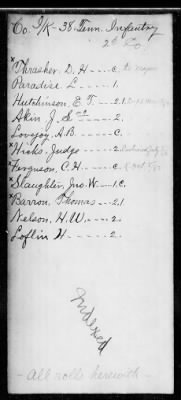 Co. I/K - 38. Tenn. Infantry
2d Co.
xThrasher, D. H - - c. to major
Paradise, L - - - - 1.
Hutchinson, E. T. - - 2.1
Akin, J. S - - 2
Lovejoy, A. B. - - - C.
xHicks, Judge - - 2.
xFerguson, C. H - - - c.
xSlaughter, Jno. W. - - 1.C.
xBarron, Thomas - - - 2.1
Nelson, H. W. - - - 2.
Loflin H - - - - 2.
Indexed
- All rolls herewith -